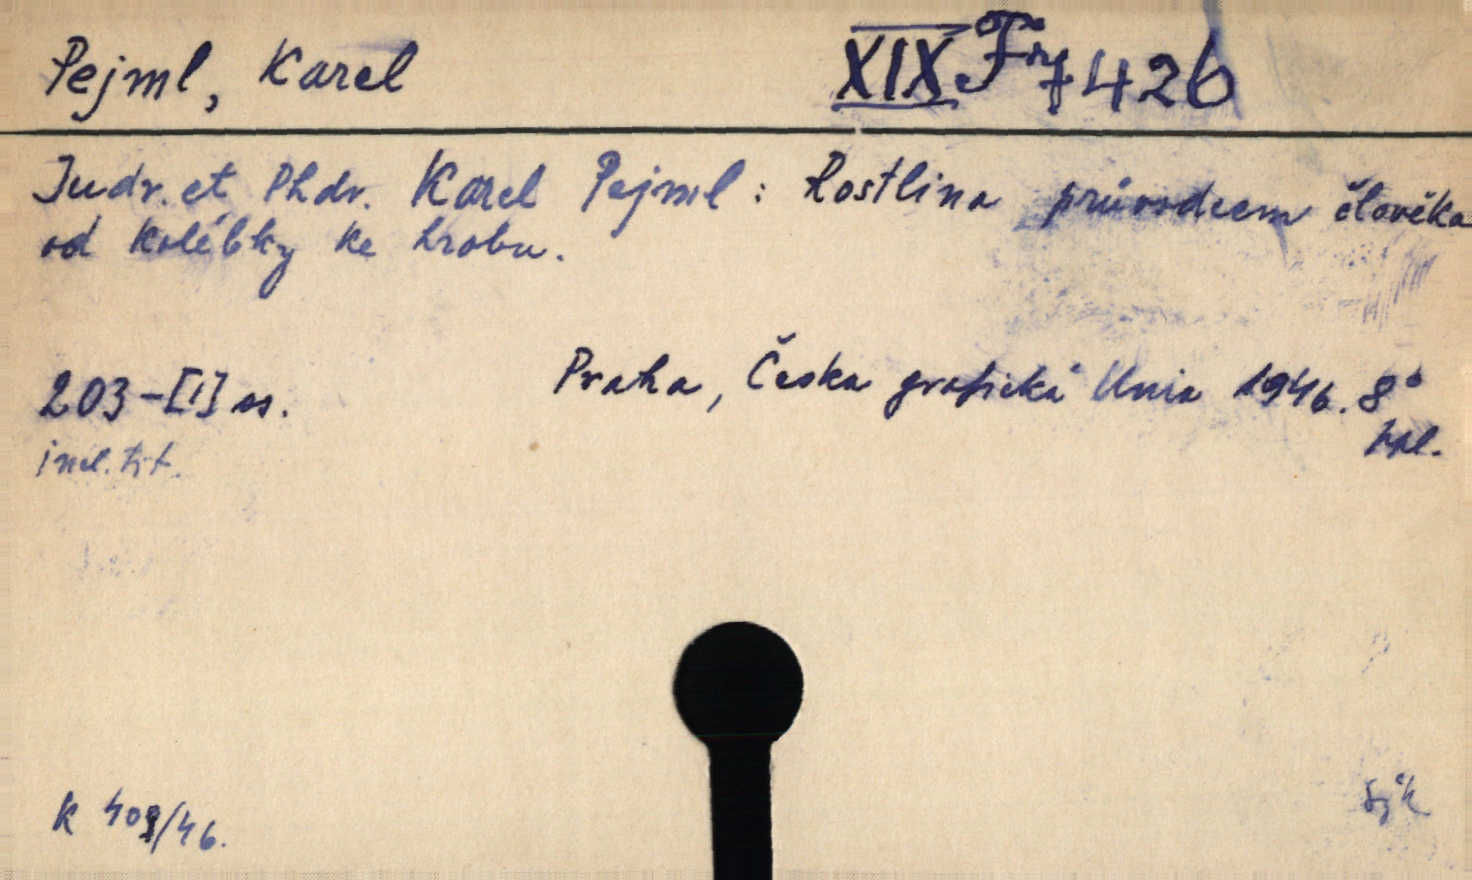 Pejml, Karel XIX F 7426
Judr. et Phdr. Karel Pejml: Rostlina průvodcem člověka
od kolébky ke hrobu.
203-[1] ss. Praha, Česka grafická Unia 1946. 8°
incl. tit.
K 409/46.